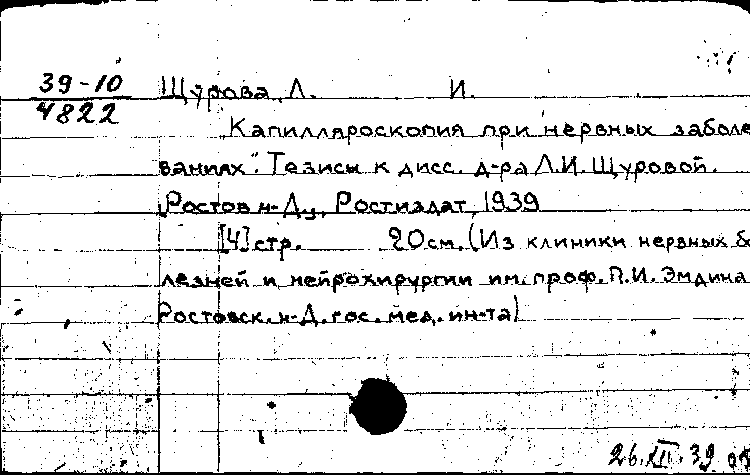 39-10
4822
Щурова, Л. И.
"Капилляроскопия при нервных заболе
ваниях". Тезисы к дисс. д-ра Л.И. Щуровой.
Ростов н-Ду, Ростиздат, 1939
[4] стр. 20 см. (Из клиники нервных бо
лезней и нейрохирургии им. проф. П.И. Эмдина
Ростовск. н-Д. гос. мед. ин-та)
26.XII.39